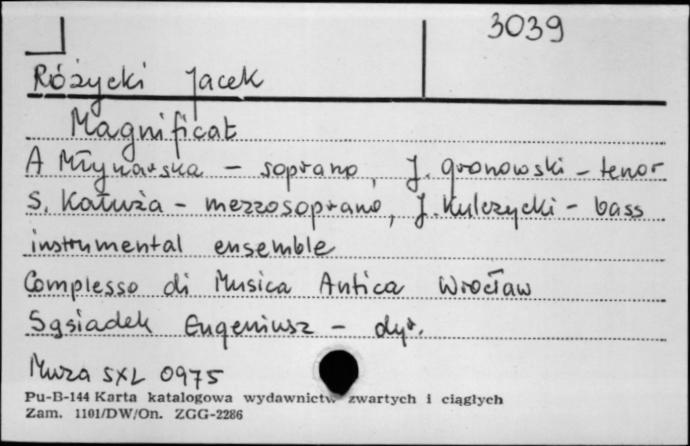 3039
Różycki Jacek
Magnificat
A Młynarska - soprano, J. gronowski - tenor
S. Kałuża - mezzosoprano, J. Kulczycki - bass
instrumental ensemble
Complesso di Musica Antica Wrocław
Sąsiadek Eugeniusz - dyr.
Muza SXL 0975
Pu-B-144 Karta katalogowa wydawnictw zwartych i ciągłych
Zam. 1101/DW/On. ZGG-2286